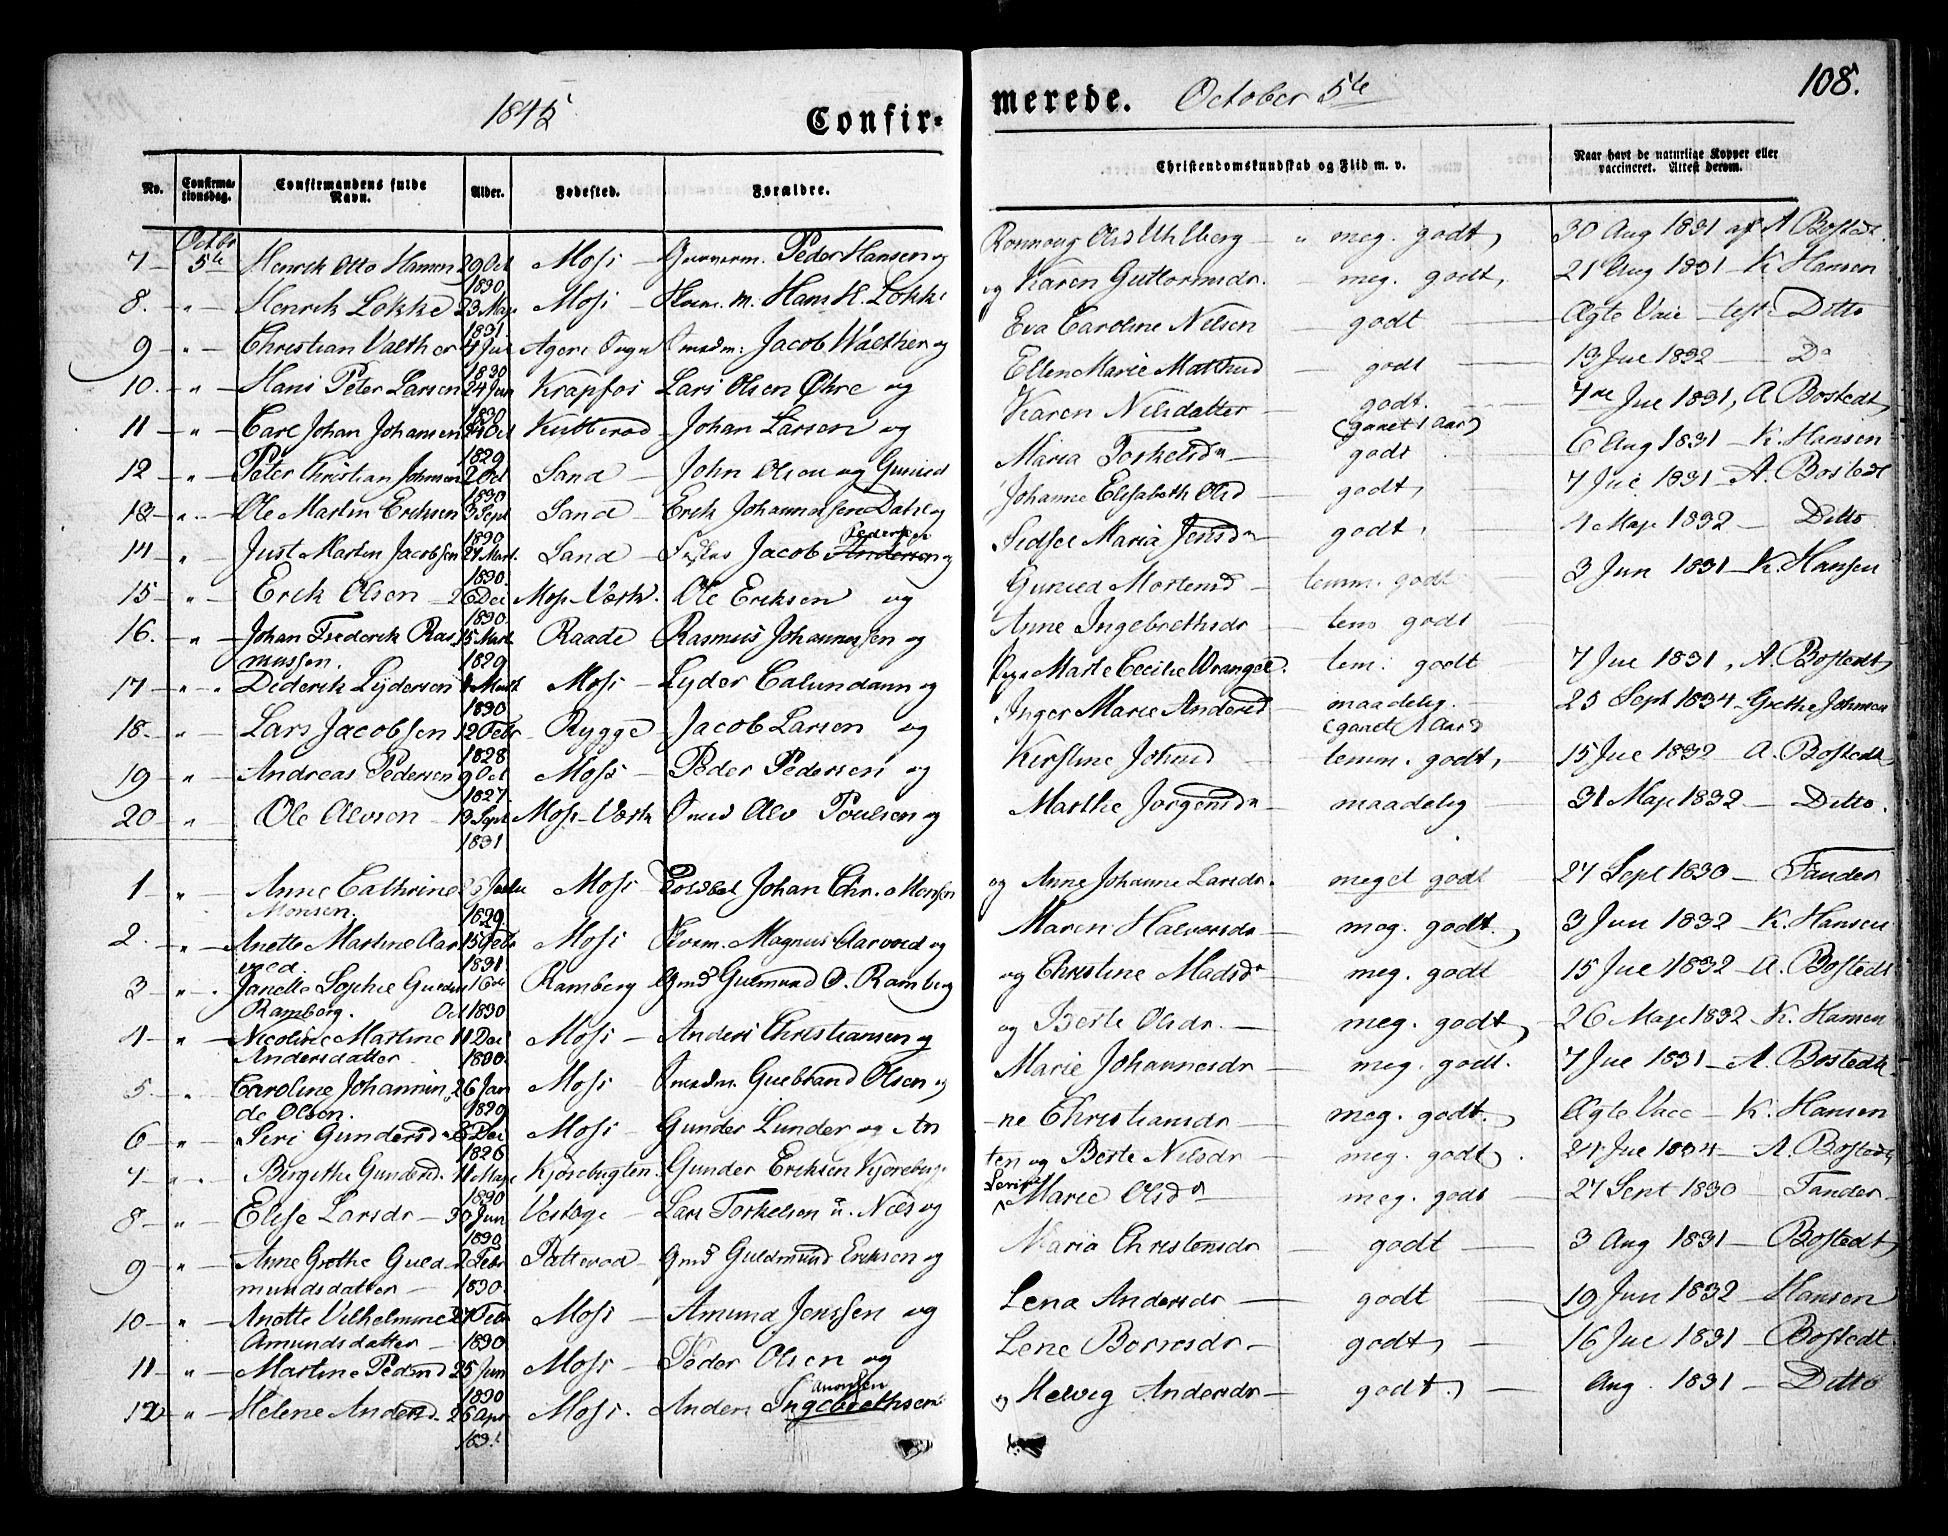 1845
Confir-
No.
Confirma-
tionsdag.
Confirmandens fulde
Navn.
Alder.
Fødested.
Forældre.
Octbr
7 5te Henrik Otto Hansen 29 Oct 1830 Moss Peder Hansen og
8. " Henrik Løkke 23 1831. Moss Hans H. Løkke
9 " Christian Valther 4 Jul 1830 Agers Sogn Jacob Walther og
10. " Hans Peter Larsen 24 Jun 1830 Krapfos Lars Olsen Øhre og
11 " Carl Johan Johansen 24 Oct 1829 Johan Larsen og
12 " Peter Christian Johnsen 2 Oct 1830 Sand John Olsen og
13 " Ole Martin Eriksen 3 Sept 1830 Sand Erik Johannessen Dahl og
Pedersen
14 " Just Martin Jacobsen 27 Mart. 1830. Sand Jacob Andersen og
15 " Erik Olsen 26 Dec 1830 Moss Værk. Ole Eriksen og
16. " Johan Frederik Ras 15 Mart 1829 Raade Rasmus Johannessen og
mussen.
17 " Diderik Lydersen Mart 1830 Moss Lyder Calundann og
18. " Lars Jacobsen 12 Febr 1828 Rygge Jacob Larsen og
19 " Andreas Pedersen 9 Oct 1827. Moss Peder Pedersen og
20 " Ole Alvsen 19 Sept 1831 Moss Værk Smed Alv Poulsen og
1 " Anne Cathrine 1829 Moss Johan Chr. Monsen
Monsen.
2. " Anette Martine Aar 15 Febr 1831 Moss Magnus Aarvold og
3 " Janette Sophie 16 Oct 1830 Ramberg Gmd Gulmund O. Ramberg
Ramberg.
4 " Nicoline Martine 11 Dec 1830. Moss Anders Christiansen og
Andersdatter
5. " Caroline Johannin 26 Jan 1829 Moss Gulbrand Olsen og
de Olsen.
6 " Siri Gundersd Dec 1826 Moss Gunder Lunder og An
7 " Birgithe Gundersd. 11 Maje 1830 Kjørebugten. Gunder Eriksen
8 " Elise Larsdr 30 Jun 1830 Lars Torkelsen og
9 " Anne Grethe Guld 2 Febr 1830. Patterød Gmd Guldmund Eriksen og
mundsdatter
10 " Anette Vilhelmine 27 Febr 1830 Moss Amund Jenssen og
Amundsdatter
11 " Martine Pedersd 25 Jun 1830 Moss Peder Olsen og
12 " Helene Andersd. 26 Apr 183 Moss. Anders Ingebrethsen
merede. October 5te
108.
Christendomskundskab og Flid m. v.
Naar havt de naturlige Kopper eller
vaccineret. Attest derom.
Olsd Uhlberg " meg. godt 30 Aug 1831 af A Bostedt.
og Karen Guttormsdr. meg. godt. 21 Aug 1831 K. Hansen
Eva Caroline Nilsen godt Ægte Ditto
Ellen Marie godt 13 Jul 1832 Do
Karen Nilsdatter godt. 7 Jul 1831, A. Bostedt
Maria Torkelsd godt 6 Aug 1831 K. Hansen
Johanne Elisabeth Olsd godt 7 Jul 1831 A. Bostedt
Sidsel Maria Jensd godt 4 Maje 1832 Ditto
Mortensd temm. godt 3 Jun 1831 K. Hansen
Anne Ingebrethsdr tem godt
Marte Cecilie Wrangel. tem. godt 7 Jul 1831, A. Bostedt
Inger Marie Andersd maadelig 25 Sept 1834 Grethe Johnsen
Kirstine Johnsd temm. godt, 15 Jul 1832 A. Bostedt
Marthe Jørgensd maadelig 31 Maje 1832 Ditto.
og Anne Johanne Larsdr. meget godt 27 Sept 1830 Fander
Maren Halvorsdr meg. godt. 3 Jun 1832 K. Hansen
og Christine Madsd meg. godt 15 Jul 1832 A. Bostedt
og Berte Olsdr. meg. godt 26 Maje 1832 K. Hansen
Marie Johannesdr meg. godt. 7 Jul 1831 A. Bostedt
ne Christiansdr meg. godt. Ægte Vacc K. Hansen
ten og Berte Nilsdr meg. godt. 24 Jul 1834 A. Bostedt
Marie Olsd meg. godt 27 Sept 1830 Fander
Maria Christensdr godt 3 Aug 1831 Bostedt
Lena Andersdr godt 19 Jun 1832 Hansen
Lene godt 16 Jul 1831 Bostedt.
og Helvig Andersdr godt. Aug. 1831 Ditto